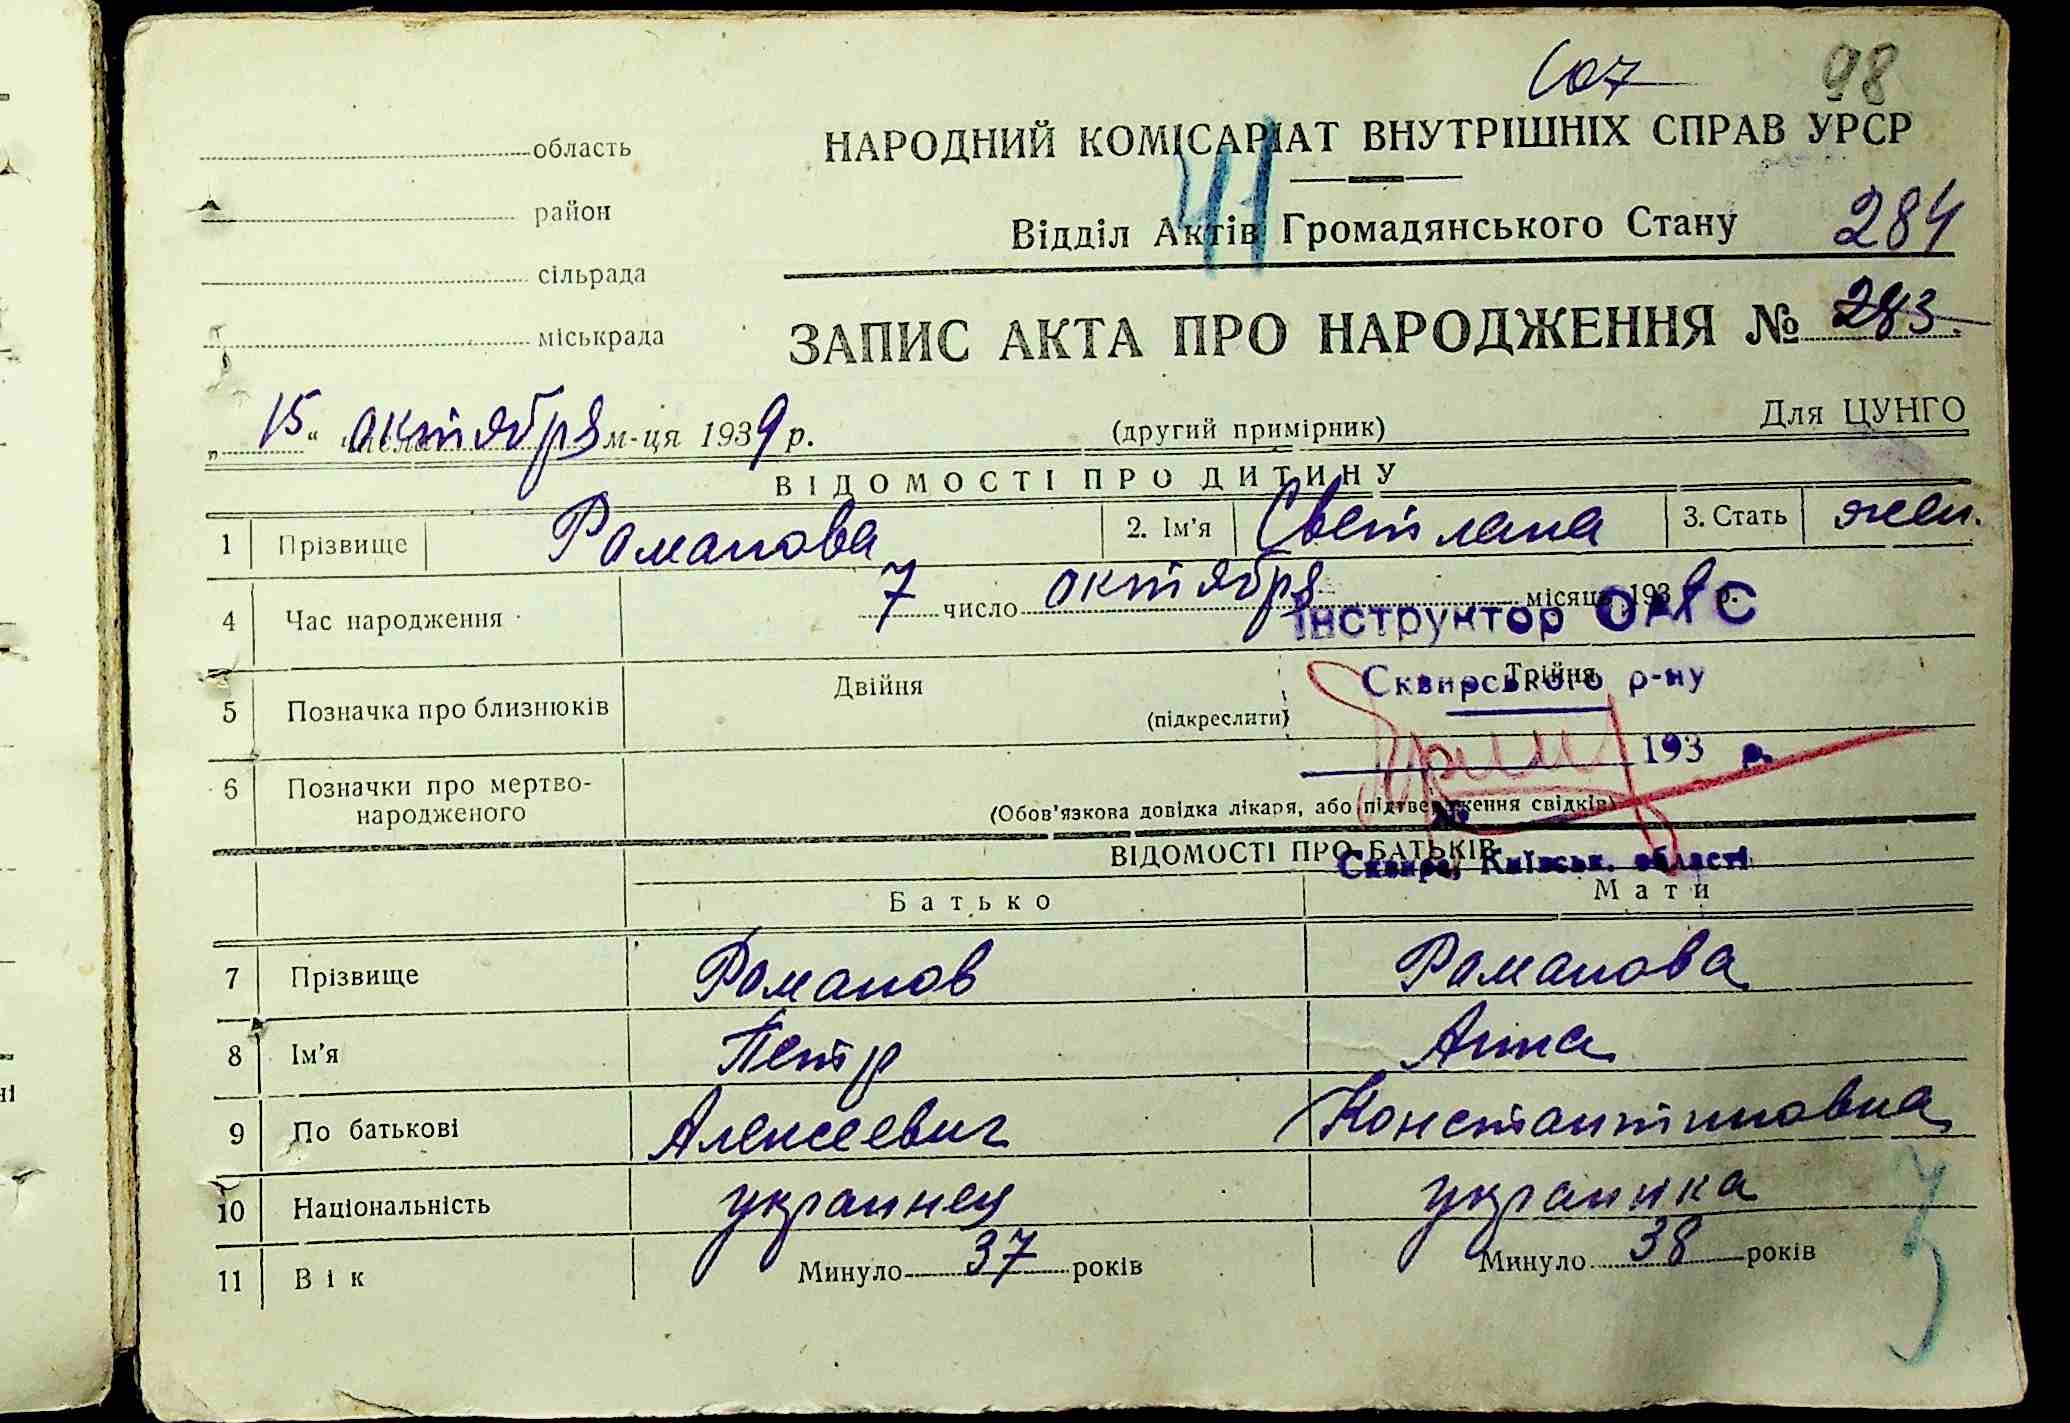 98
область
НАРОДНИЙ КОМІСАРІАТ ВНУТРІШНІХ СПРАВ УРСР
район
41
Відділ Актів Громадянського Стану 284
сільрада
міськрада
ЗАПИС АКТА ПРО НАРОДЖЕННЯ № 283
„15“ октября м-ця 1939 р.
(другий примірник)
Для ЦУНГО
ВІДОМОСТІ ПРО ДИТИНУ
1 Прізвище Романова 2. Ім'я Светлана 3. Стать жен.
4 Час народження 7 число октября місяць 1939 р.
Інструктор ОАГС
5 Позначка про близнюків Двійня (підкреслити) Трійня
Сквирського р-ну
193 р.
6 Позначки про мертво-
народженого (Обов'язкова довідка лікаря, або підтвердження свідків)
№
ВІДОМОСТІ ПРО БАТЬКІВ
Сквира, Київськ. області
Батько Мати
7 Прізвище Романов Романова
8 Ім'я Петр Анна
9 По батькові Алексеевич Константиновна
10 Національність украинец украинка
11 Вік Минуло 37 років Минуло 38 років